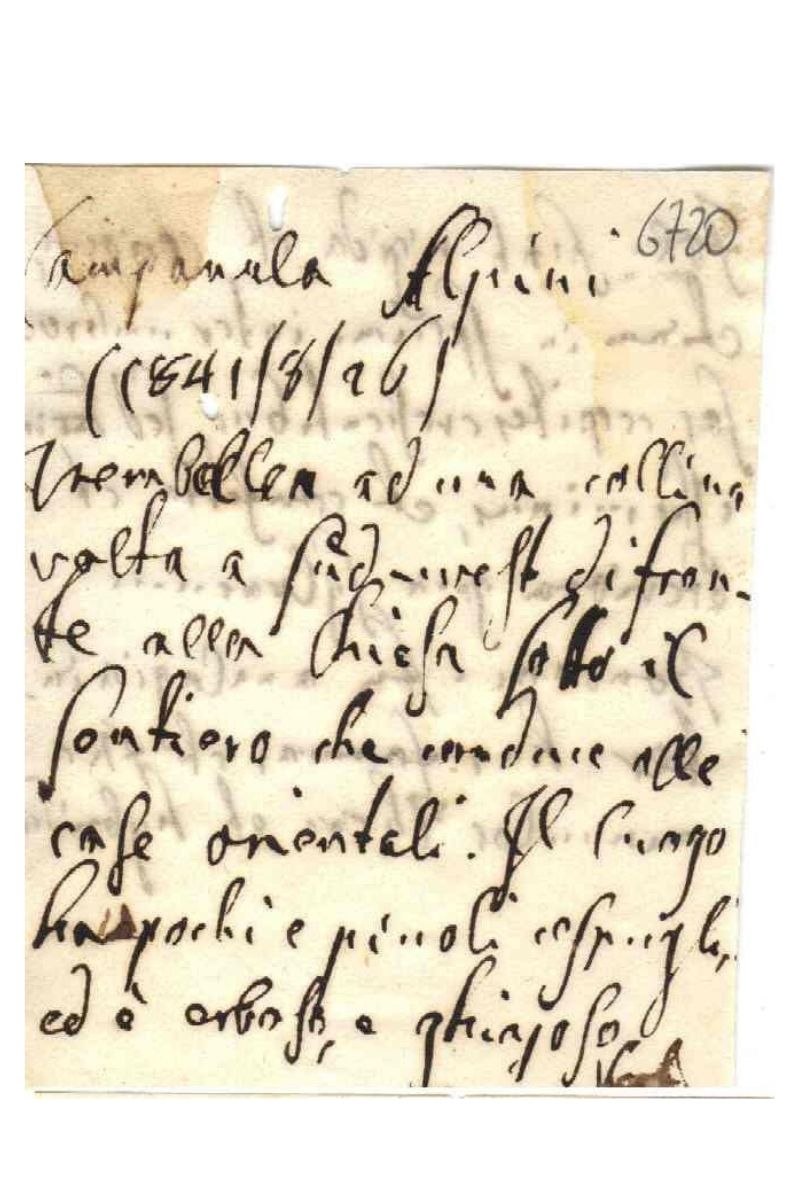 6720
Campanula Alpini
(1841/8/26)
Trembellea ad una collina
volta a Sud-uvest di fron-
te alla Chiesa sotto il
sentiero che conduce alle
case orientali. Il luogo
ha pochi e piccoli cespugli,
ed è erboso, e ghiajoso